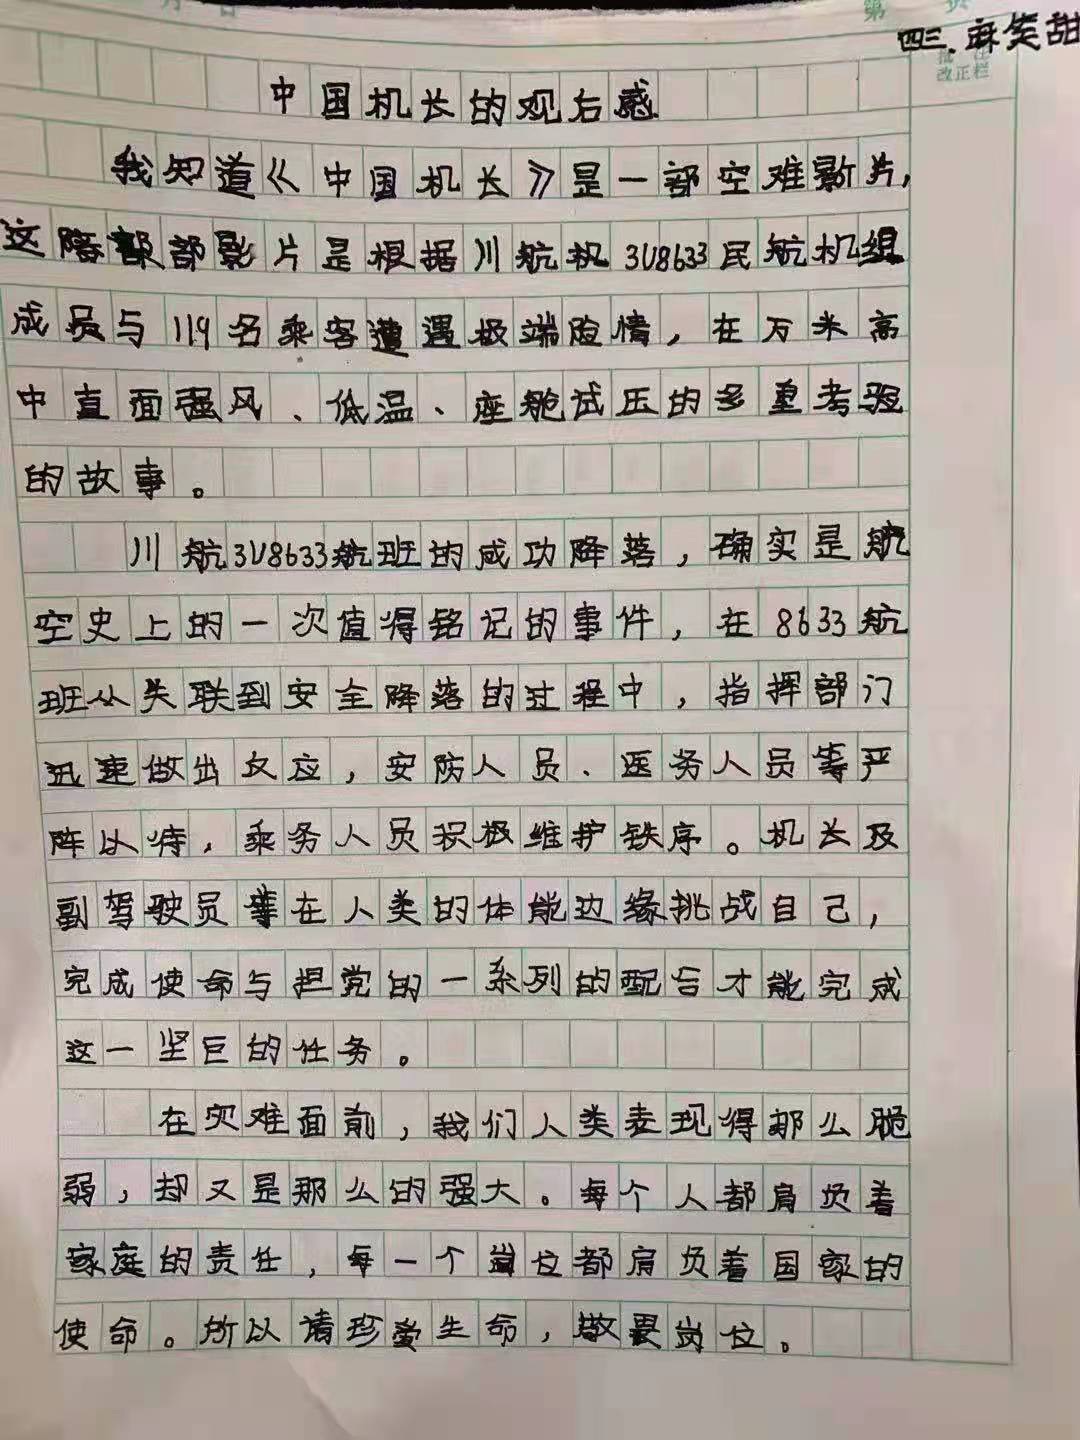 月 日
第 页
四三. 麻笑甜
批注
改正栏
中国机长的观右感
我知道《中国机长》是一部空难影片,
这部影片是根据川航机3U8633民航机组
成员与119名乘客遭遇极端险情，在万米高
中直面强风、低温、座舱试压的多重考验
的故事。
川航3U8633航班的成功降落，确实是航
空史上的一次值得铭记的事件，在8633航
班从失联到安全降落的过程中，指挥部门
迅速做出反应，安防人员、医务人员等严
阵以待，乘务人员积极维护铁序。机长及
副驾驶员等在人类的体能边缘挑战自己，
完成使命与担党的一系列的配合才能完成
这一坚巨的任务。
在灾难面前，我们人类表现得那么脆
弱，却又是那么的强大。每个人都肩负着
家庭的责任，每一个岗位都肩负着国家的
使命。所以请珍爱生命，敬畏岗位。